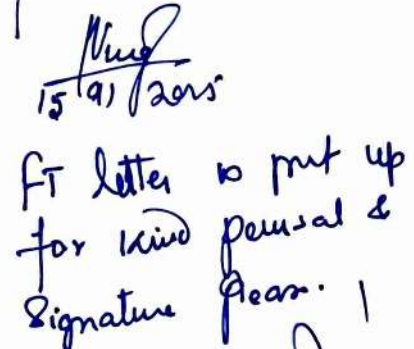 15/9/2015
FT letter is put up
for kind perusal &
Signature please.